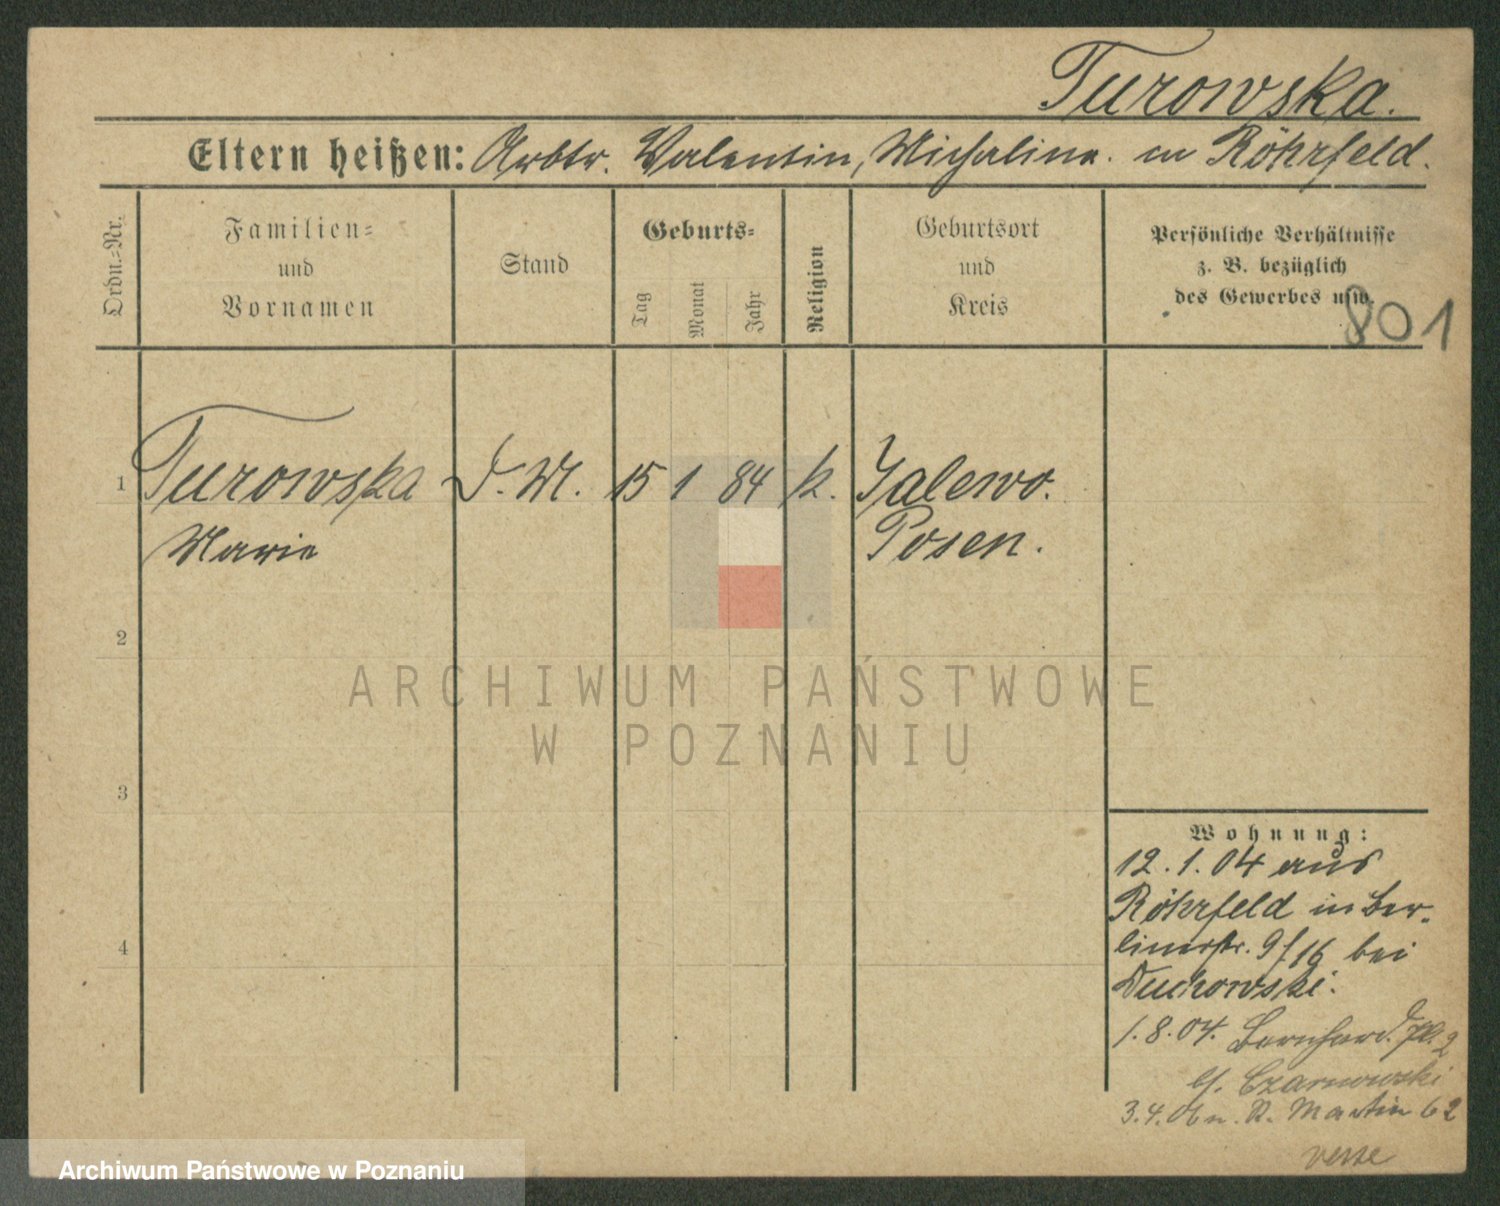 Turowska.
Eltern heißen: Arbtr. Valentin, Michalina. in Röhrfeld.
Ordn.-Nr.
Familien-
und
Vornamen
Stand
Geburts-
Tag
Monat
Jahr
Religion
Geburtsort
und
Kreis
Persönliche Verhältnisse
z. B. bezüglich
des Gewerbes usw.
801
1 Turowska D. M. 15 1 84 k. Zalewo.
Marie Posen.
2
3
4
ARCHIWUM PAŃSTWOWE
W POZNANIU
Wohnung:
12.1.04 aus
Röhrfeld in Ber-
linerstr. 9/16 bei
Duchowski.
1.8.04. Bernhard. Pl. 2
b/. Czarnowski
3.4.06 n. St. Martin 62
verse
Archiwum Państwowe w Poznaniu